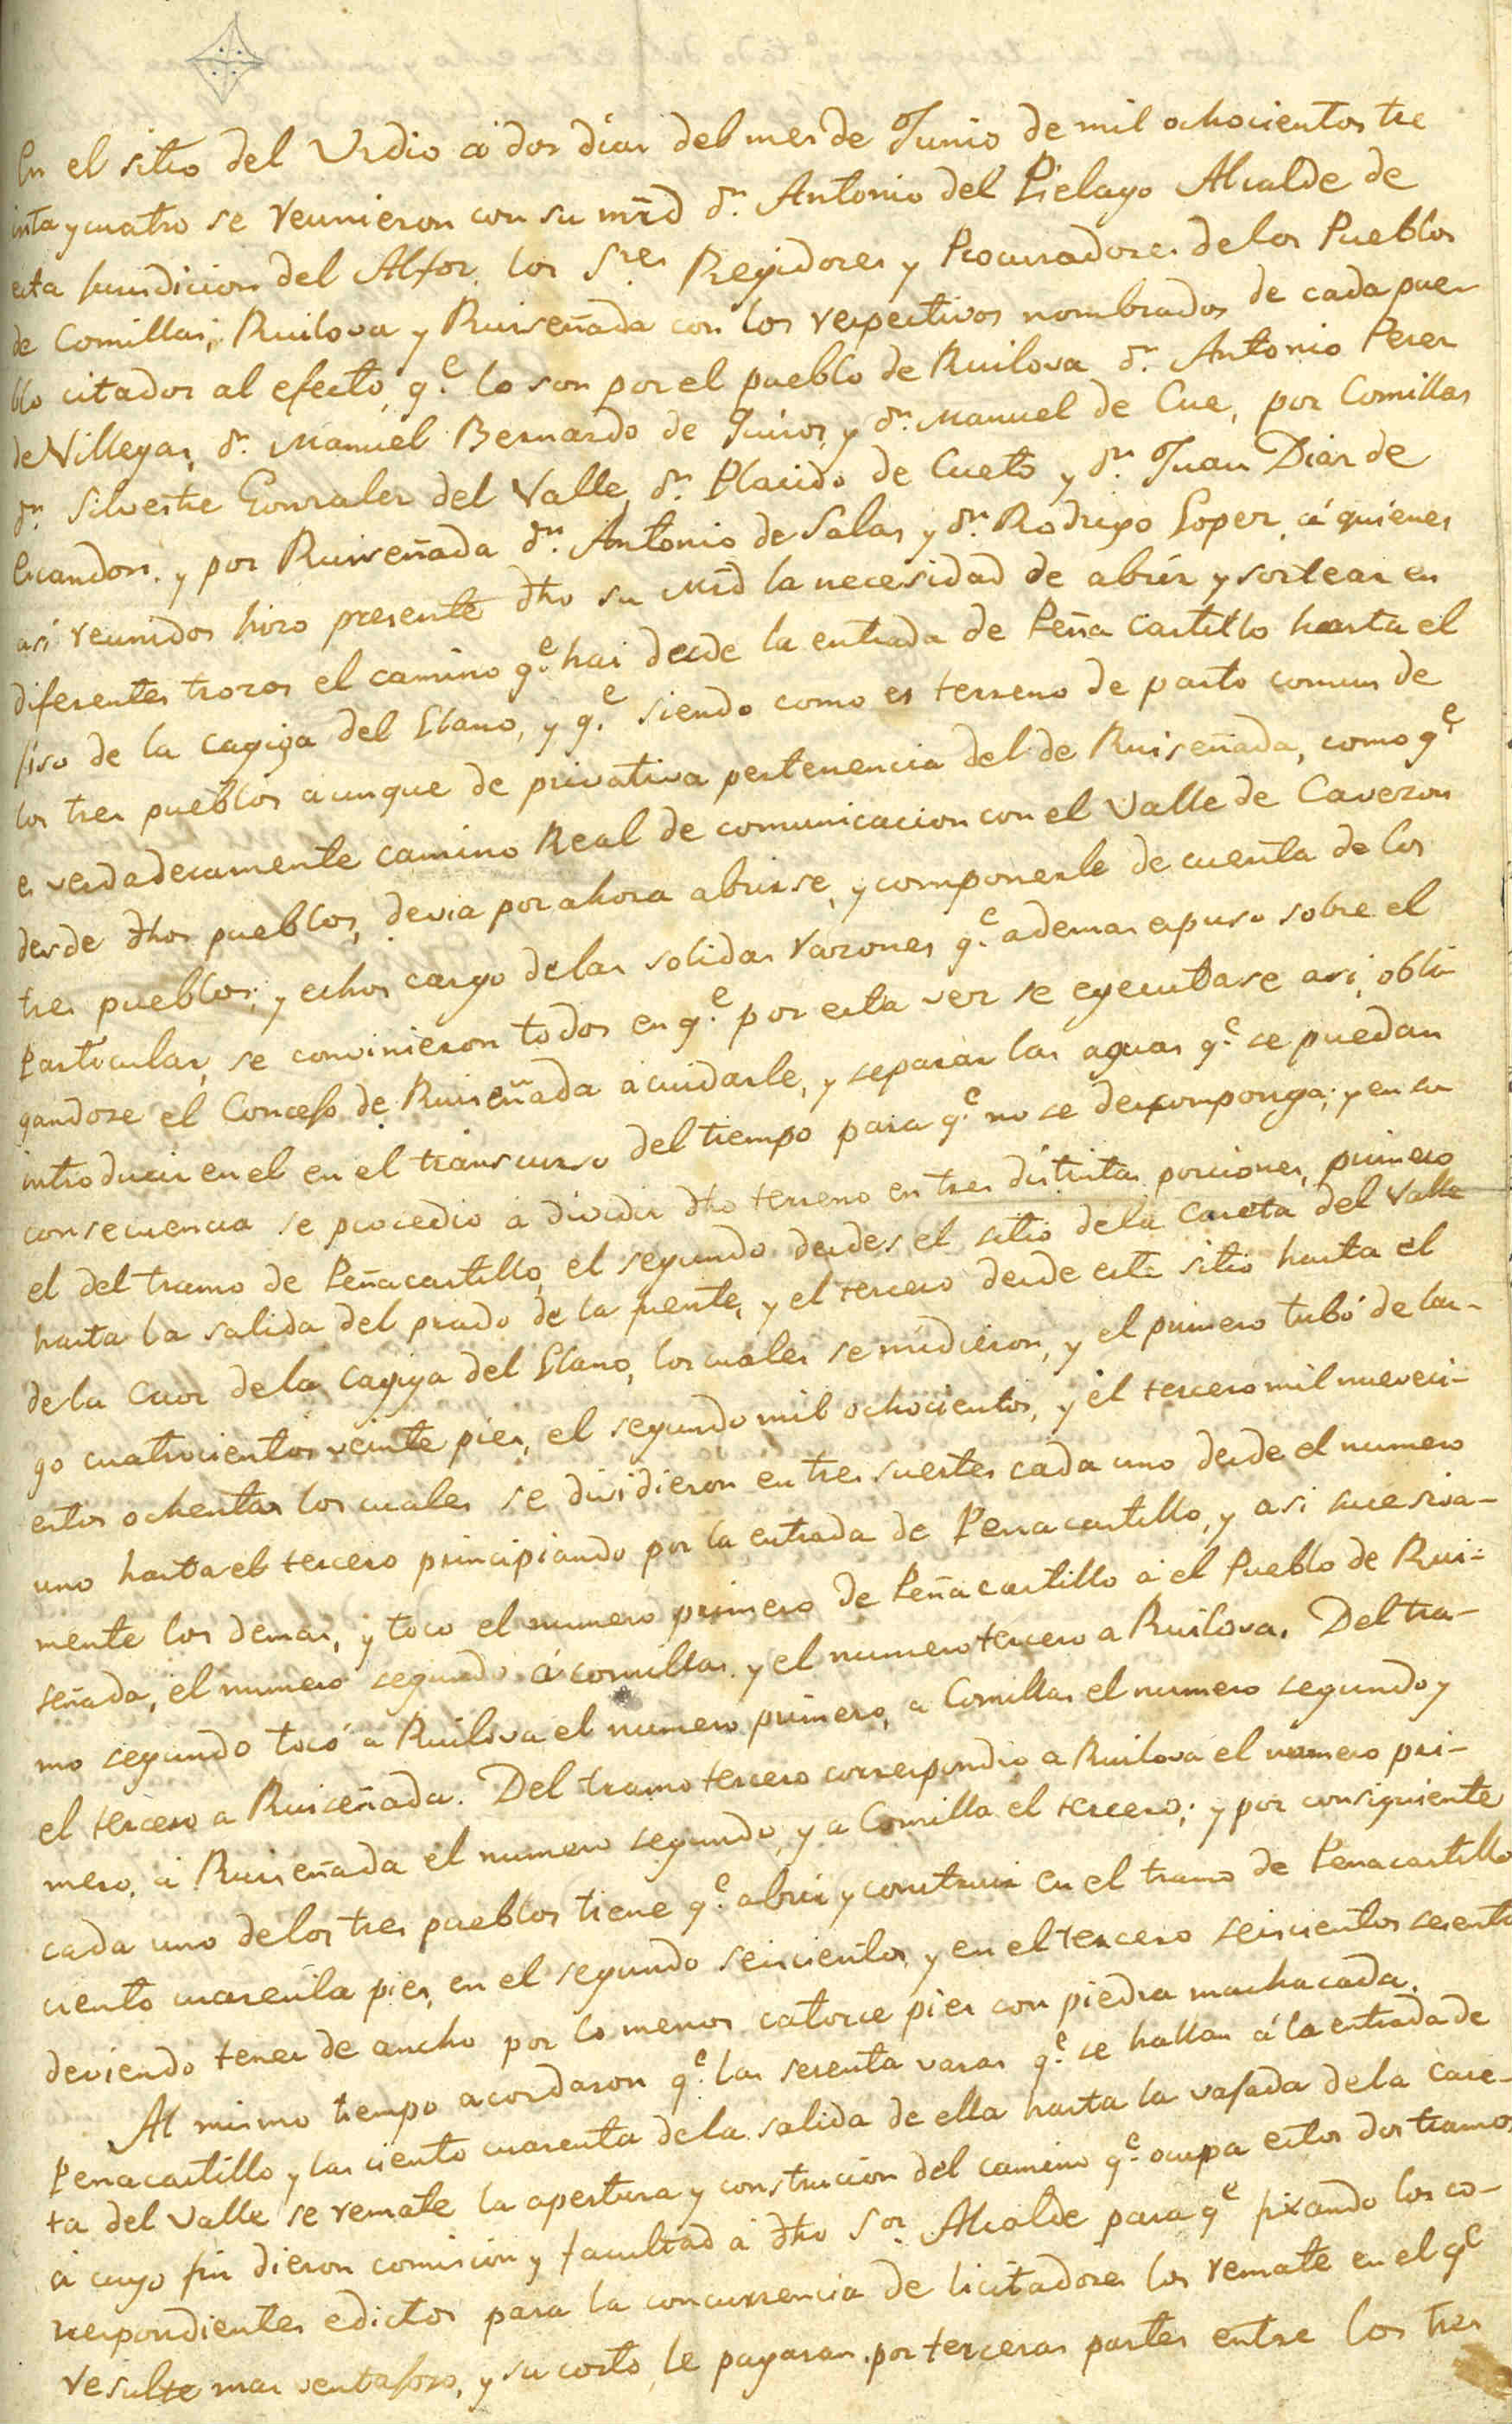 En el sitio del Urdio a dos dias del mes de Junio de mil ochocientos tre
inta y cuatro se reunieron con su mrd dn. Antonio del Pielago Alcalde de
esta Jurisdicion del Alfoz los Sres Regidores y Procuradores de los Pueblos
de Comillas, Ruilova y Ruiseñada con los respectivos nombrados de cada pue-
blo citados al efecto, qe. lo son por el pueblo de Ruilova dn. Antonio Perez
de Villegas, dn. Manuel Bernardo de Quiros, y dn. Manuel de Cue, por Comillas
dn. Silvestre Gonzalez del Valle, dn. Placido de Cueto y dn. Juan Diaz de
Escandon. y por Ruiseñada dn. Antonio de Salas y dn. Rodrigo Lopez, á quienes
asi reunidos hizo presente dho su mrd la necesidad de abrir y sortear en
diferentes trozos el camino qe. hai desde la entrada de Peña Castillo hasta el
liso de la cagiga del Llano, y qe. siendo como es terreno de pasto comun de
los tres pueblos aunque de privativa pertenencia del de Ruiseñada, como qe.
es verdaderamente camino Real de comunicacion con el Valle de Cavezon
desde dhos pueblos, devia por ahora abrirse, y componerle de cuenta de los
tres pueblos; y echos cargo de las solidas razones qe. ademas espuso sobre el
Particular, se convinieron todos en qe. por esta vez se egecutase asi, obli-
gandose el Concejo de Ruiseñada a cuidarle, y separar las aguas qe. se puedan
introducir en el en el transcurso del tiempo para qe. no se descomponga; y en su
consecuencia se procedio a dividir dho terreno en tres distintas porciones, primero
el del tramo de Peñacastillo, el segundo desde el sitio de la Caseta del Valle
hasta la salida del prado de la fuente, y el tercero desde este sitio hasta el
de la Cruz de la Cagiga del Llano, los cuales se midieron, y el primero tubó de lar-
go cuatrocientos veinte pies, el segundo mil ochocientos, y el tercero mil noveci-
entos ochenta los cuales se dividieron en tres suertes cada uno desde el numero
uno hasta el tercero principiando por la entrada de Penacastillo, y asi sucesiva-
mente los demas, y toco el numero primero de Peñacastillo á el Pueblo de Rui-
señada, el numero segundo á comillas y el numero tercero a Ruilova. Del tra-
mo segundo tocó a Ruilova el numero primero, a Comillas el numero segundo y
el tercero a Ruiseñada. Del tramo tercero correspondio a Ruilova el numero pri-
mero, á Ruiseñada el numero segundo, y a Comilla el tercero; y por consiguiente
cada uno de los tres pueblos tiene qe. abrir y construir en el tramo de Penacastillo
ciento cuarenta pies, en el segundo seiscientos, y en el tercero seiscientos sesenta
deviendo tener de ancho por lo menos catorce pies con piedra machacada.
Al mismo tiempo acordaron qe. las sesenta varas qe. se hallan á la entrada de
Penacastillo y las ciento cuarenta de la salida de ella hasta la vajada de la Case-
ta del Valle se remate la apertura y construcion del camino qe. ocupa estos dos tramos,
á cuyo fin dieron comision y facultad á dho Sor. Alcalde para qe fixando los co-
rrespondientes edictos para la concurrencia de licitadores los remate en el qe
resulte mas ventajoso, y su costo, le pagaran por terceras partes entre los tres